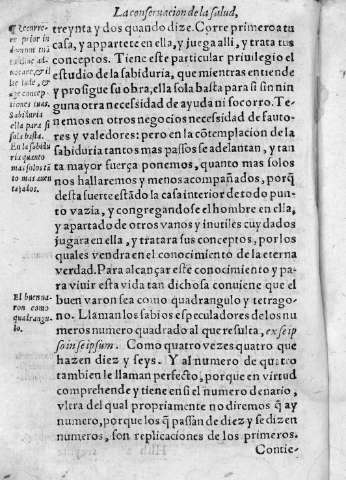 La conseruacion de la salud,
treynta y dos quando dize. Corre primero a tu
casa, y appartete en ella, y juega alli, y trata tus
conceptos. Tiene este particular priuilegio el
estudio de la sabiduria, que mientras entiende
y prosigue su obra, ella sola basta para si sin nin
guna otra necessidad de ayuda ni socorro. Te-
nemos en otros negocios necessidad de fauto-
res y valedores: pero en la cõtemplacion de la
sabiduria tantos mas passos se adelantan, y tan
ta mayor fuerça ponemos, quanto mas solos
nos hallaremos y menos acompañados, porq̃
desta suerte estãdo la casa interior de todo pun-
to vazia, y congregandose el hombre en ella,
y apartado de otros vanos y inutiles cuydados
jugara en ella, y tratara sus conceptos, por los
quales vendra en el conocimiento de la eterna
verdad. Para alcançar este conocimiento y pa-
ra viuir esta vida tan dichosa conuiene que el
buen varon sea como quadrangulo y tetrago-
no. Llaman los sabios especuladores de los nu
meros numero quadrado al que resulta, ex se ip
so in se ipsum. Como quatro vezes quatro que
hazen diez y seys. Y al numero de quatro
tambien le llaman perfecto, porque en virtud
comprehende y tiene en si el numero denario,
vltra del qual propriamente no diremos q̃ ay
numero, porque los q̃ passan de diez y se dizen
numeros, son replicaciones de los primeros.
Contie-
prior in
sabiduria
ella para si
sola basta.
En la sabidu
ria quanto
mas solos tã
to mas auen
tajados.
El buen ua-
ron como
quadrangu-
lo.